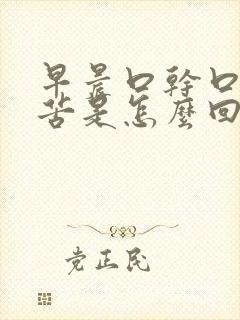 早晨口幹口
苦是怎麼回
党正民